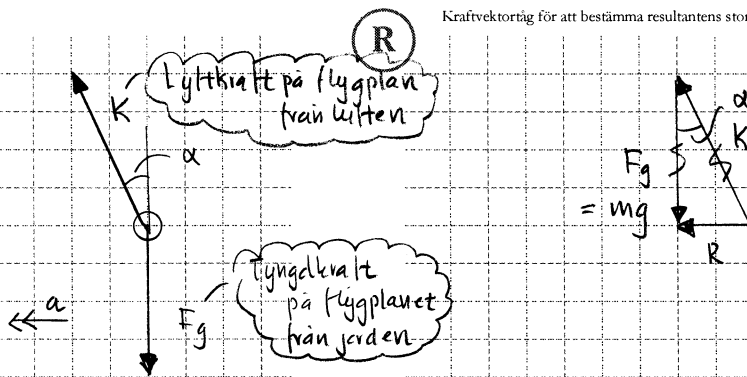 Kraftvektortåg för att bestämma resultantens stor
R
Lyftkraft på flygplan
från luften
K
α
α
K
Fg
= mg
R
Tyngdkraft
på flygplanet
från jorden
Fg
a